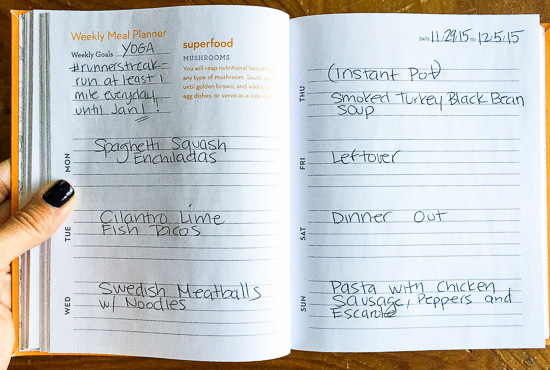 Weekly Meal Planner
Weekly Goals YOGA
#runnerstreak-
run at least 1
mile everyday
until Jan 1!
superfood
MUSHROOMS
You will reap nutritional benefits
any type of mushroom. Sauté
until golden brown, and add to
egg dishes, or serve as a side
MON
Spaghetti Squash
Enchiladas
TUE
Cilantro Lime
Fish Tacos
WED
Swedish Meatballs
w/ Noodles
DATE 11/29/15 TO 12/5/15
THU
(Instant Pot)
Smoked Turkey Black Bean
Soup
FRI
Leftover
SAT
Dinner Out
SUN
Pasta with Chicken
Sausage, Peppers and
Escarole